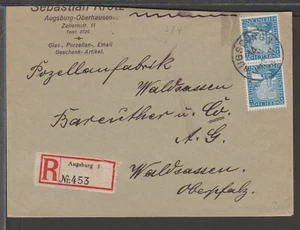 Sebastian Krotz
Augsburg-Oberhausen
Glas-, Porzellan-, Email
Geschenk-Artikel.
Pozellanfabrik
Waldsassen
Bareuther u. Co.
A. G.
Waldsassen.
Oberpfalz.
R
Augsburg
No. 453